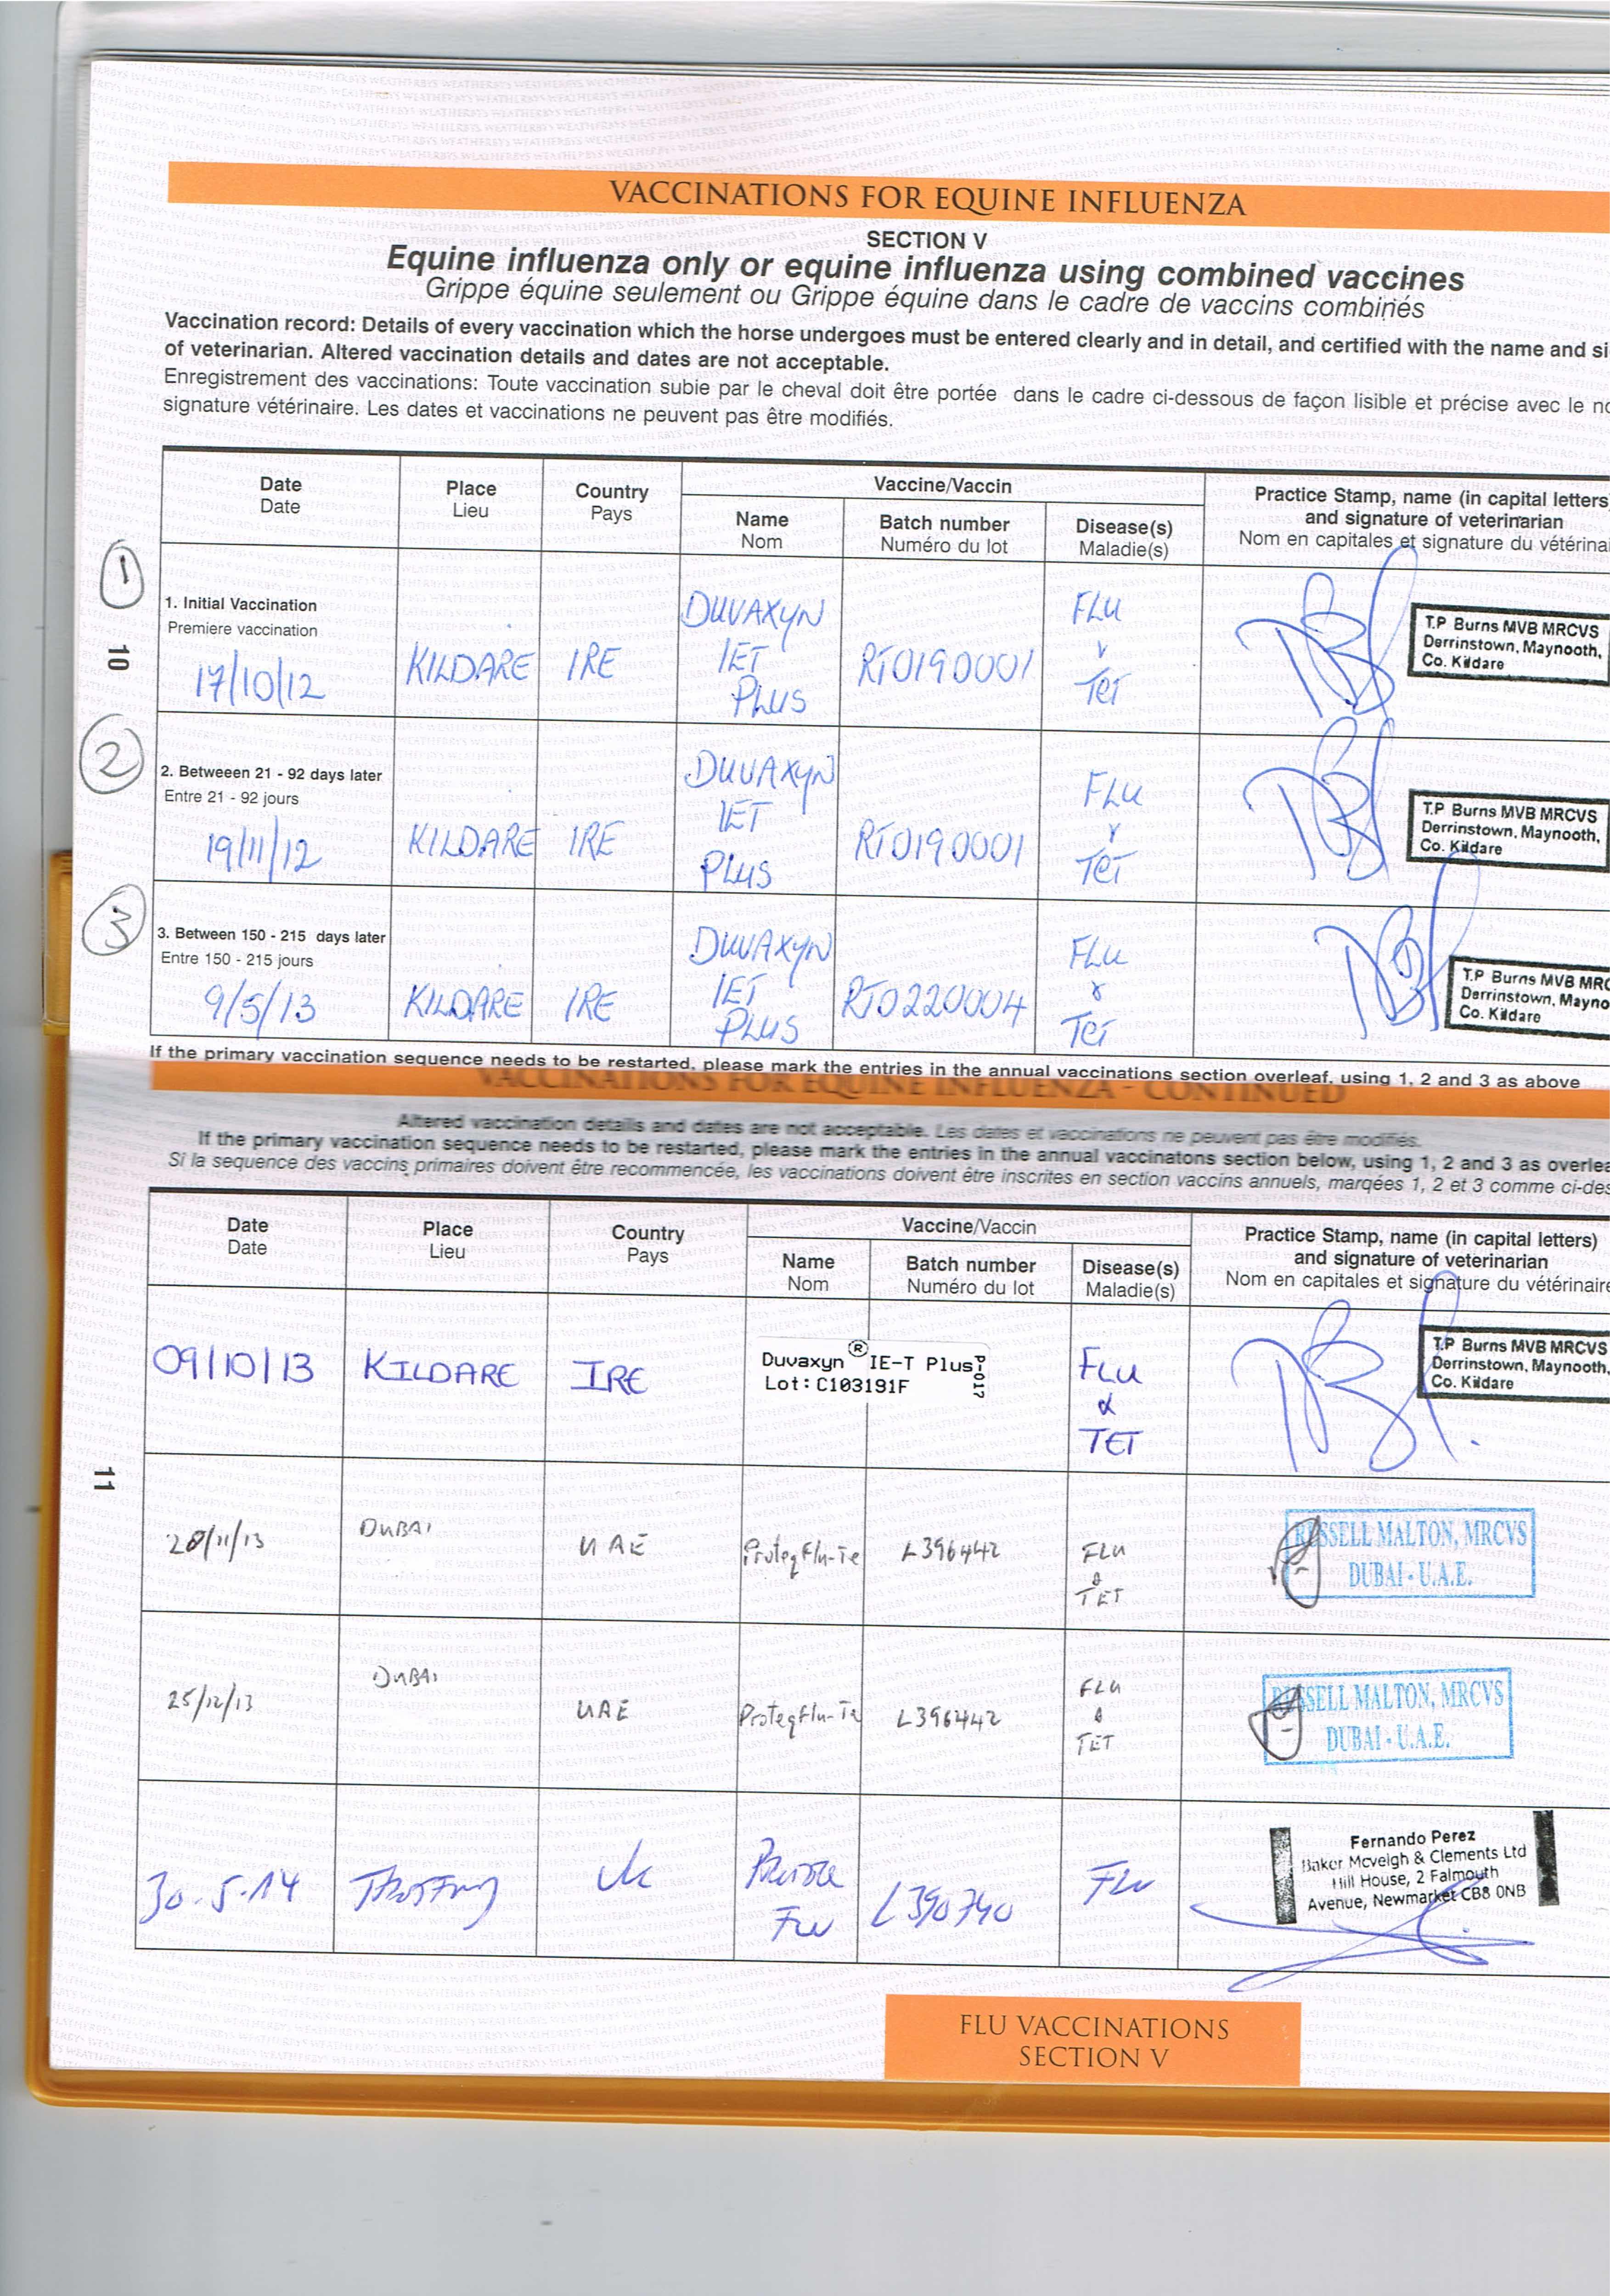 VACCINATIONS FOR EQUINE INFLUENZA
SECTION V
Equine influenza only or equine influenza using combined vaccines
Grippe équine seulement ou Grippe équine dans le cadre de vaccins combinés
Vaccination record: Details of every vaccination which the horse undergoes must be entered clearly and in detail, and certified with the name and si
of veterinarian. Altered vaccination details and dates are not acceptable.
Enregistrement des vaccinations: Toute vaccination subie par le cheval doit être portée dans le cadre ci-dessous de façon lisible et précise avec le no
signature vétérinaire. Les dates et vaccinations ne peuvent pas être modifiés.
Date
Date
Place
Lieu
Country
Pays
Vaccine/Vaccin
Name
Nom
Batch number
Numéro du lot
Disease(s)
Maladie(s)
Practice Stamp, name (in capital letters
and signature of veterinarian
Nom en capitales et signature du vétérina
1
10
1. Initial Vaccination
Premiere vaccination
17/10/12
KILDARE
IRE
DUVAXYN
IET
PLUS
RT0190001
FLU
&
TET
T.P Burns MVB MRCVS
Derrinstown, Maynooth,
Co. Kildare
2
2. Betweeen 21 - 92 days later
Entre 21 - 92 jours
19/11/12
KILDARE
IRE
DUVAXYN
IET
PLUS
RT0190001
FLU
&
TET
T.P Burns MVB MRCVS
Derrinstown, Maynooth,
Co. Kildare
3
3. Between 150 - 215 days later
Entre 150 - 215 jours
9/5/13
KILDARE
IRE
DUVAXYN
IET
PLUS
RT0220004
FLU
&
TET
T.P Burns MVB MRC
Derrinstown, Mayno
Co. Kildare
If the primary vaccination sequence needs to be restarted, please mark the entries in the annual vaccinations section overleaf, using 1, 2 and 3 as above
VACCINATIONS FOR EQUINE INFLUENZA - CONTINUED
Altered vaccination details and dates are not acceptable. Les dates et vaccinations ne peuvent pas être modifiés.
If the primary vaccination sequence needs to be restarted, please mark the entries in the annual vaccinatons section below, using 1, 2 and 3 as overlea
Si la sequence des vaccins primaires doivent être recommencée, les vaccinations doivent être inscrites en section vaccins annuels, marqées 1, 2 et 3 comme ci-des
Date
Date
Place
Lieu
Country
Pays
Vaccine/Vaccin
Name
Nom
Batch number
Numéro du lot
Disease(s)
Maladie(s)
Practice Stamp, name (in capital letters)
and signature of veterinarian
Nom en capitales et signature du vétérinaire
11
09/10/13
KILDARE
IRE
Duvaxyn ® IE-T Plus
Lot: C103191F
P017
FLU
&
TET
T.P Burns MVB MRCVS
Derrinstown, Maynooth,
Co. Kildare
28/11/13
DUBAI
UAE
ProteqFlu-Te
L396442
FLU
&
TET
RUSSELL MALTON, MRCVS
DUBAI - U.A.E.
25/12/13
DUBAI
UAE
ProteqFlu-Te
L396442
FLU
&
TET
RUSSELL MALTON, MRCVS
DUBAI - U.A.E.
30.5.14
UK
Flu
L390740
FLU
Fernando Perez
Baker Mcveigh & Clements Ltd
Hill House, 2 Falmouth
Avenue, Newmarket CB8 0NB
FLU VACCINATIONS
SECTION V